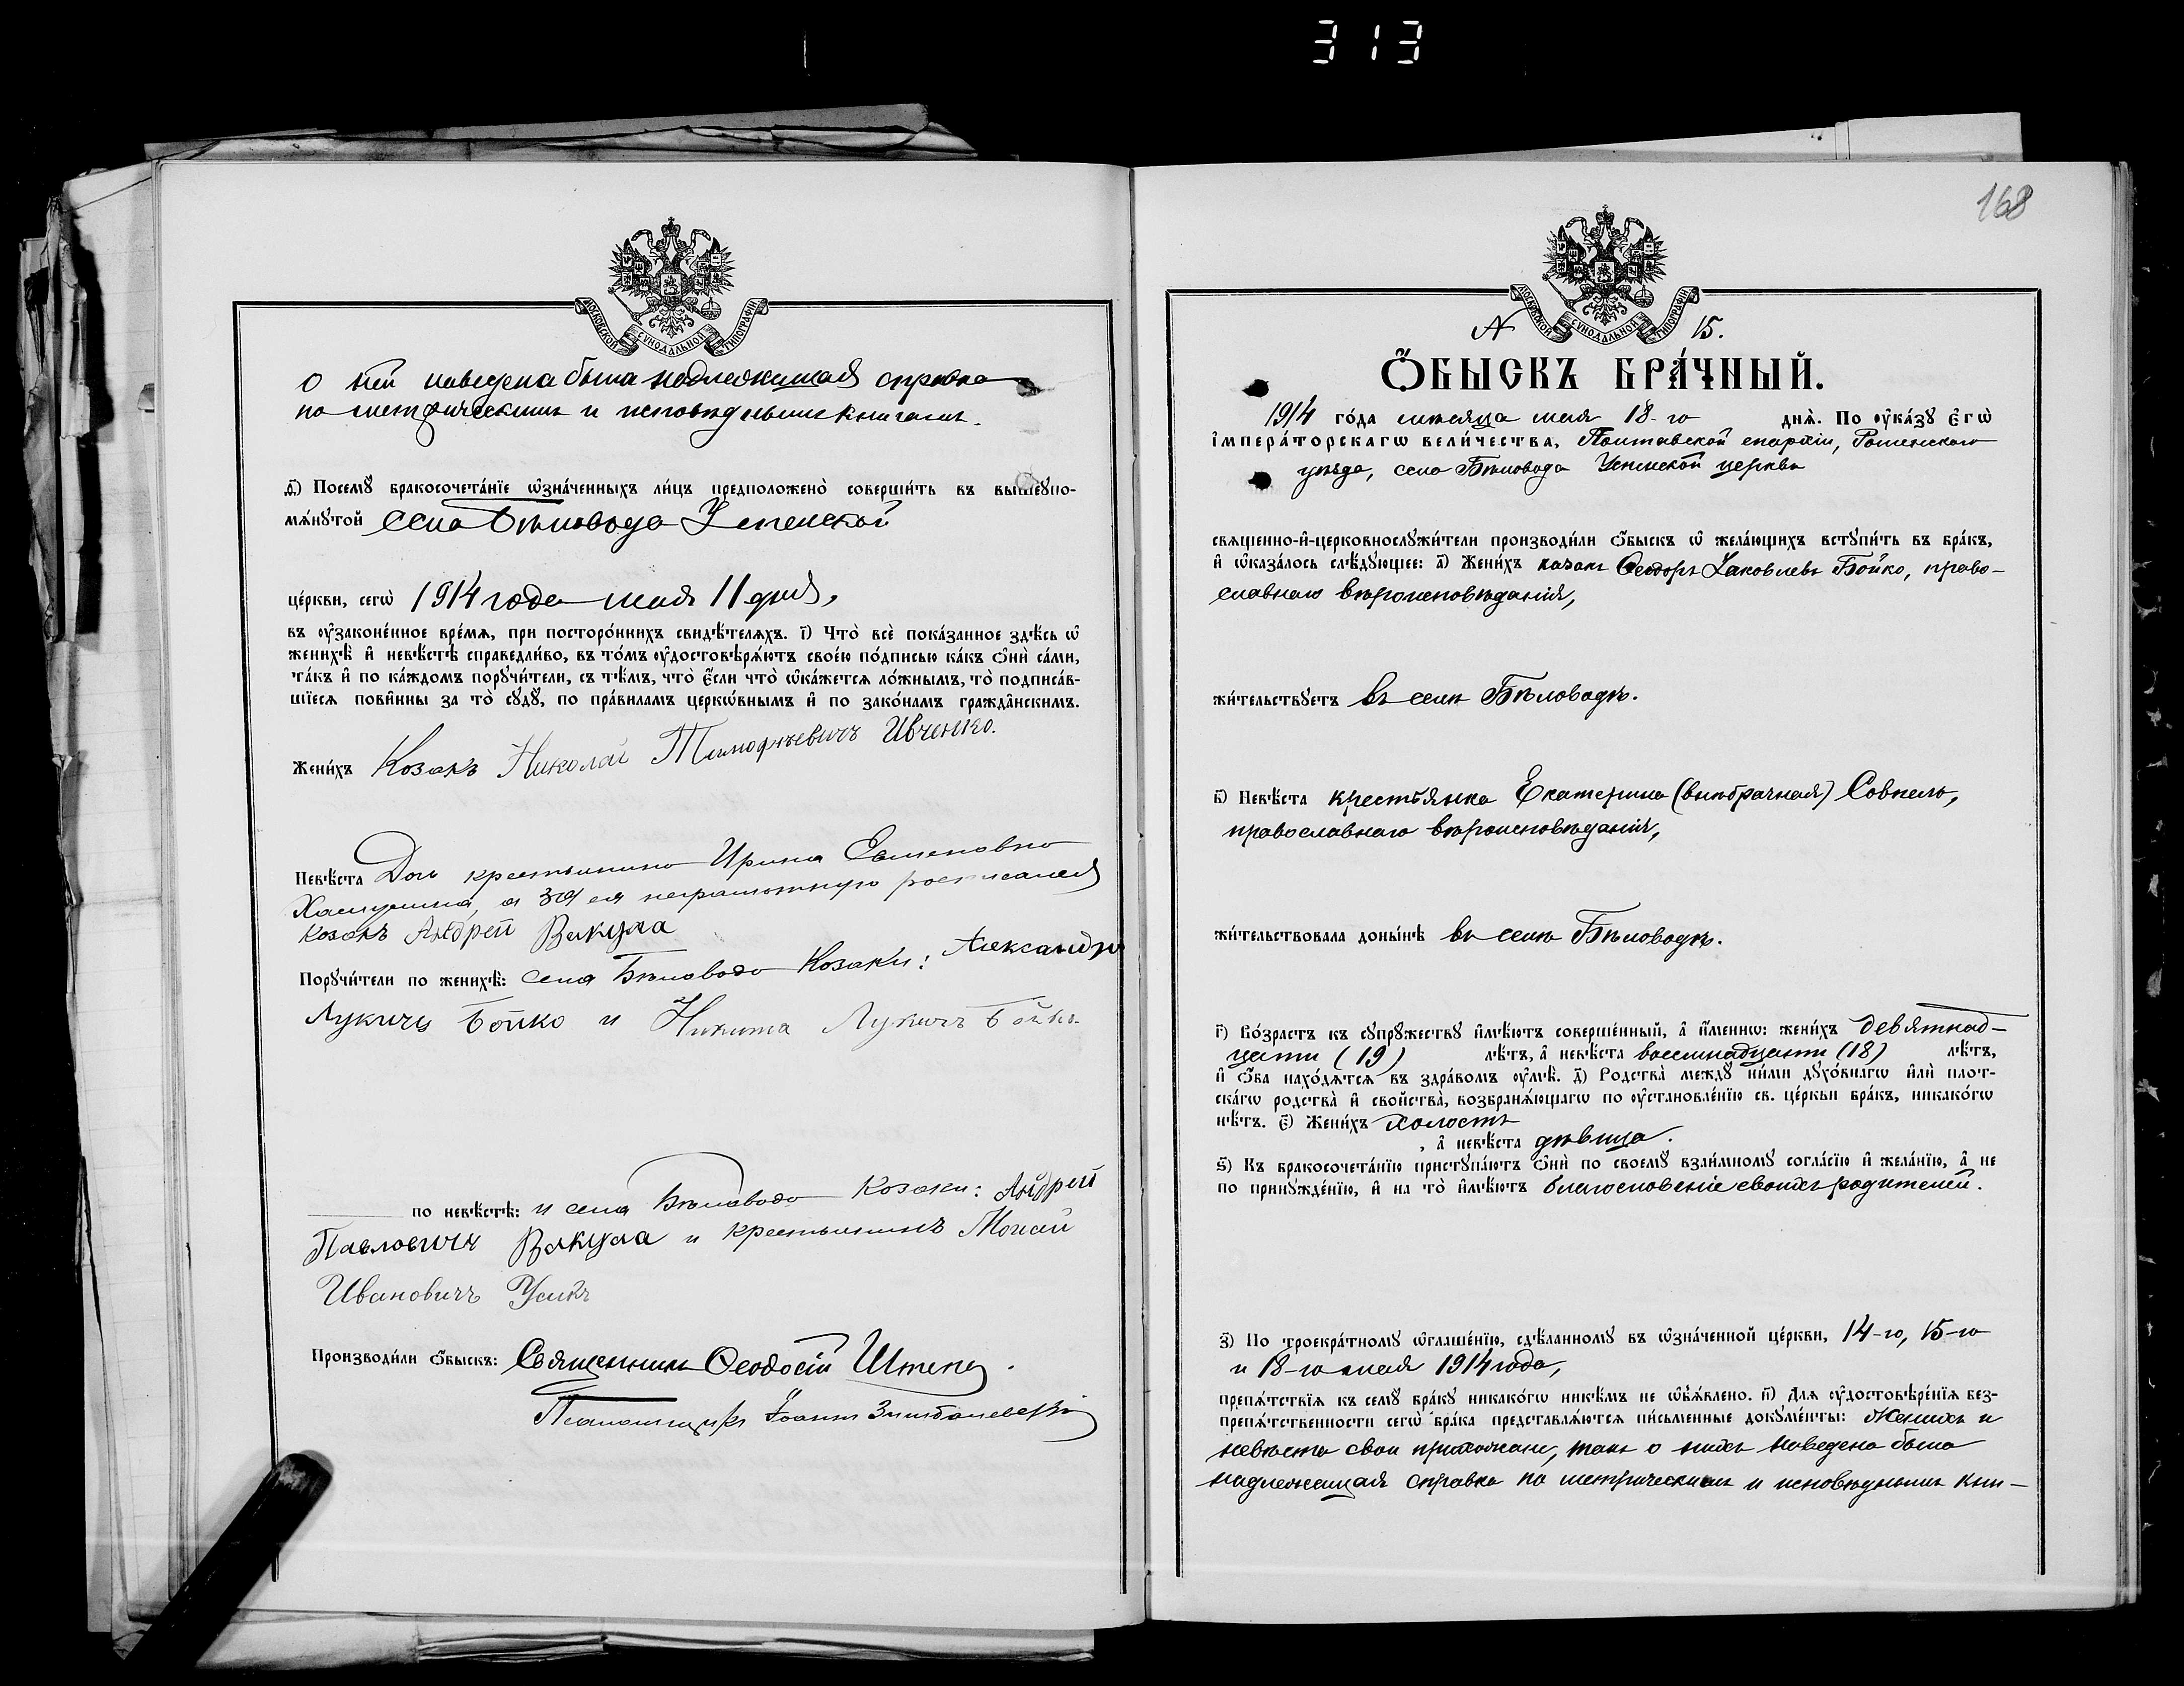 313
МОСКОВСКОЙ СѴНОДАЛЬНОЙ ТИПОГРАФІИ
о ней наведена была надлежащая справка
по метрическимъ и исповѣднымъ книгамъ.
Посемꙋ̀ бракосочета́нїе ѡ҆зна́ченныхъ ли́цъ предположено̀ соверши́ть въ вышеꙋпо-
мѧ́нꙋтой села Бѣловода Успенской
це́ркви, сегѡ̀ 1914 года мая 11 дня,
въ ᲂу҆законе́нное вре́мѧ, при посторо́ннихъ свидѣ́телѧхъ. і҃) Что̀ всѐ пока́занное здѣ́сь ѡ҆
женихѣ̀ и҆ невѣ́стѣ справедли́во, въ то́мъ ᲂу҆достовѣрѧ́ютъ свое́ю по́дписью ка́къ ѻ҆нѝ са́ми,
та́къ и҆ по ка́ждомъ порꙋчи́тели, съ тѣ́мъ, что̀ є҆́сли что̀ ѡ҆ка́жетсѧ ло́жнымъ, то̀ подписа́в-
шїесѧ пови́нны за то̀ сꙋдꙋ̀, по пра́виламъ церко́внымъ и҆ по зако́намъ гражда́нскимъ.
Жени́хъ Козакъ Николай Тимофѣевичъ Ивченко.
Невѣ́ста Дочь крестьянина Ирина Семеновна
а за ея неграмотную росписался
козакъ Андрей Вакула
Порꙋчи́тели по женихѣ̀: села Бѣловода Козаки: Александръ
Лукичъ Бойко и Никита Лукичъ Бойко
по невѣ́стѣ: и села Бѣловода Козаки: Андрей
Павловичъ Вакула и крестьянинъ
Ивановичъ Усикъ
Производи́ли ѻ҆́быскъ: Священникъ Ѳеодосій Штепа.
Псаломщикъ Іоаннъ
168
МОСКОВСКОЙ СѴНОДАЛЬНОЙ ТИПОГРАФІИ
№ 15.
Ѻ҆́БЫСКЪ БРА́ЧНЫЙ.
1914 го́да мѣсяца мая 18-го днѧ̀. По ᲂу҆ка́зꙋ є҆гѡ̀
і҆мпера́торскагѡ вели́чества, Полтавской епархіи, Роменскаго
уѣзда, села Бѣловода Успенской церкви
свѧще́нно-и҆-церковнослꙋжи́тели производи́ли ѻ҆́быскъ ѡ҆ жела́ющихъ встꙋпи́ть въ бра́къ,
и҆ ѡ҆каза́лось слѣ́дꙋющее: а҃) Жени́хъ казакъ Ѳеодоръ Іаковлевъ Бойко, право-
славнаго вѣроисповѣданія,
жи́тельствꙋетъ въ селѣ Бѣловодѣ.
б҃) Невѣ́ста крестьянка Екатерина (внѣбрачная) Совпель,
православнаго вѣроисповѣданія,
жи́тельствовала доны́нѣ въ селѣ Бѣловодѣ.
г҃) Во́зрастъ къ сꙋпрꙋ́жествꙋ и҆мѣ́ютъ соверше́нный, а҆ и҆́менно: жени́хъ девятнад-
цати (19) лѣ́тъ, а҆ невѣ́ста восемнадцати (18) лѣ́тъ,
и҆ ѻ҆́ба нахо́дѧтсѧ въ здра́вомъ ᲂу҆мѣ̀. д҃) Родства̀ междꙋ̀ ни́ми дꙋхо́внагѡ и҆лѝ плот-
ска́гѡ родства̀ и҆ сво́йства̀, возбранѧ́ющагѡ по ᲂу҆становле́нїю св. це́ркви бра́къ, никако́гѡ
нѣ́тъ. є҃) Жени́хъ холостъ
, а҆ невѣ́ста дѣвица.
ѕ҃) Къ бракосочета́нїю пристꙋпа́ютъ ѻ҆нѝ по своемꙋ̀ взаи́мномꙋ согла́сїю и҆ жела́нїю, а҆ не
по принꙋжде́нїю, и҆ на то̀ и҆мѣ́ютъ благословеніе своихъ родителей.
з҃) По троекра́тномꙋ ѡ҆глаше́нїю, сдѣ́ланномꙋ въ ѡ҆зна́ченной це́ркви, 14-го, 15-го
и 18-го мая 1914 года,
препѧ́тствїѧ къ семꙋ̀ бра́кꙋ никако́гѡ никѣ́мъ не ѡ҆б̾ѧ́влено. и҃) Длѧ ᲂу҆достовѣре́нїѧ без-
препѧ́тственности сегѡ̀ бра́ка представлѧ́ютсѧ пи́сьменные докꙋме́нты: Женихъ и
невѣста свои прихожане, такъ о нихъ наведена была
надлежащая справка по метрическимъ и исповѣднымъ кни-